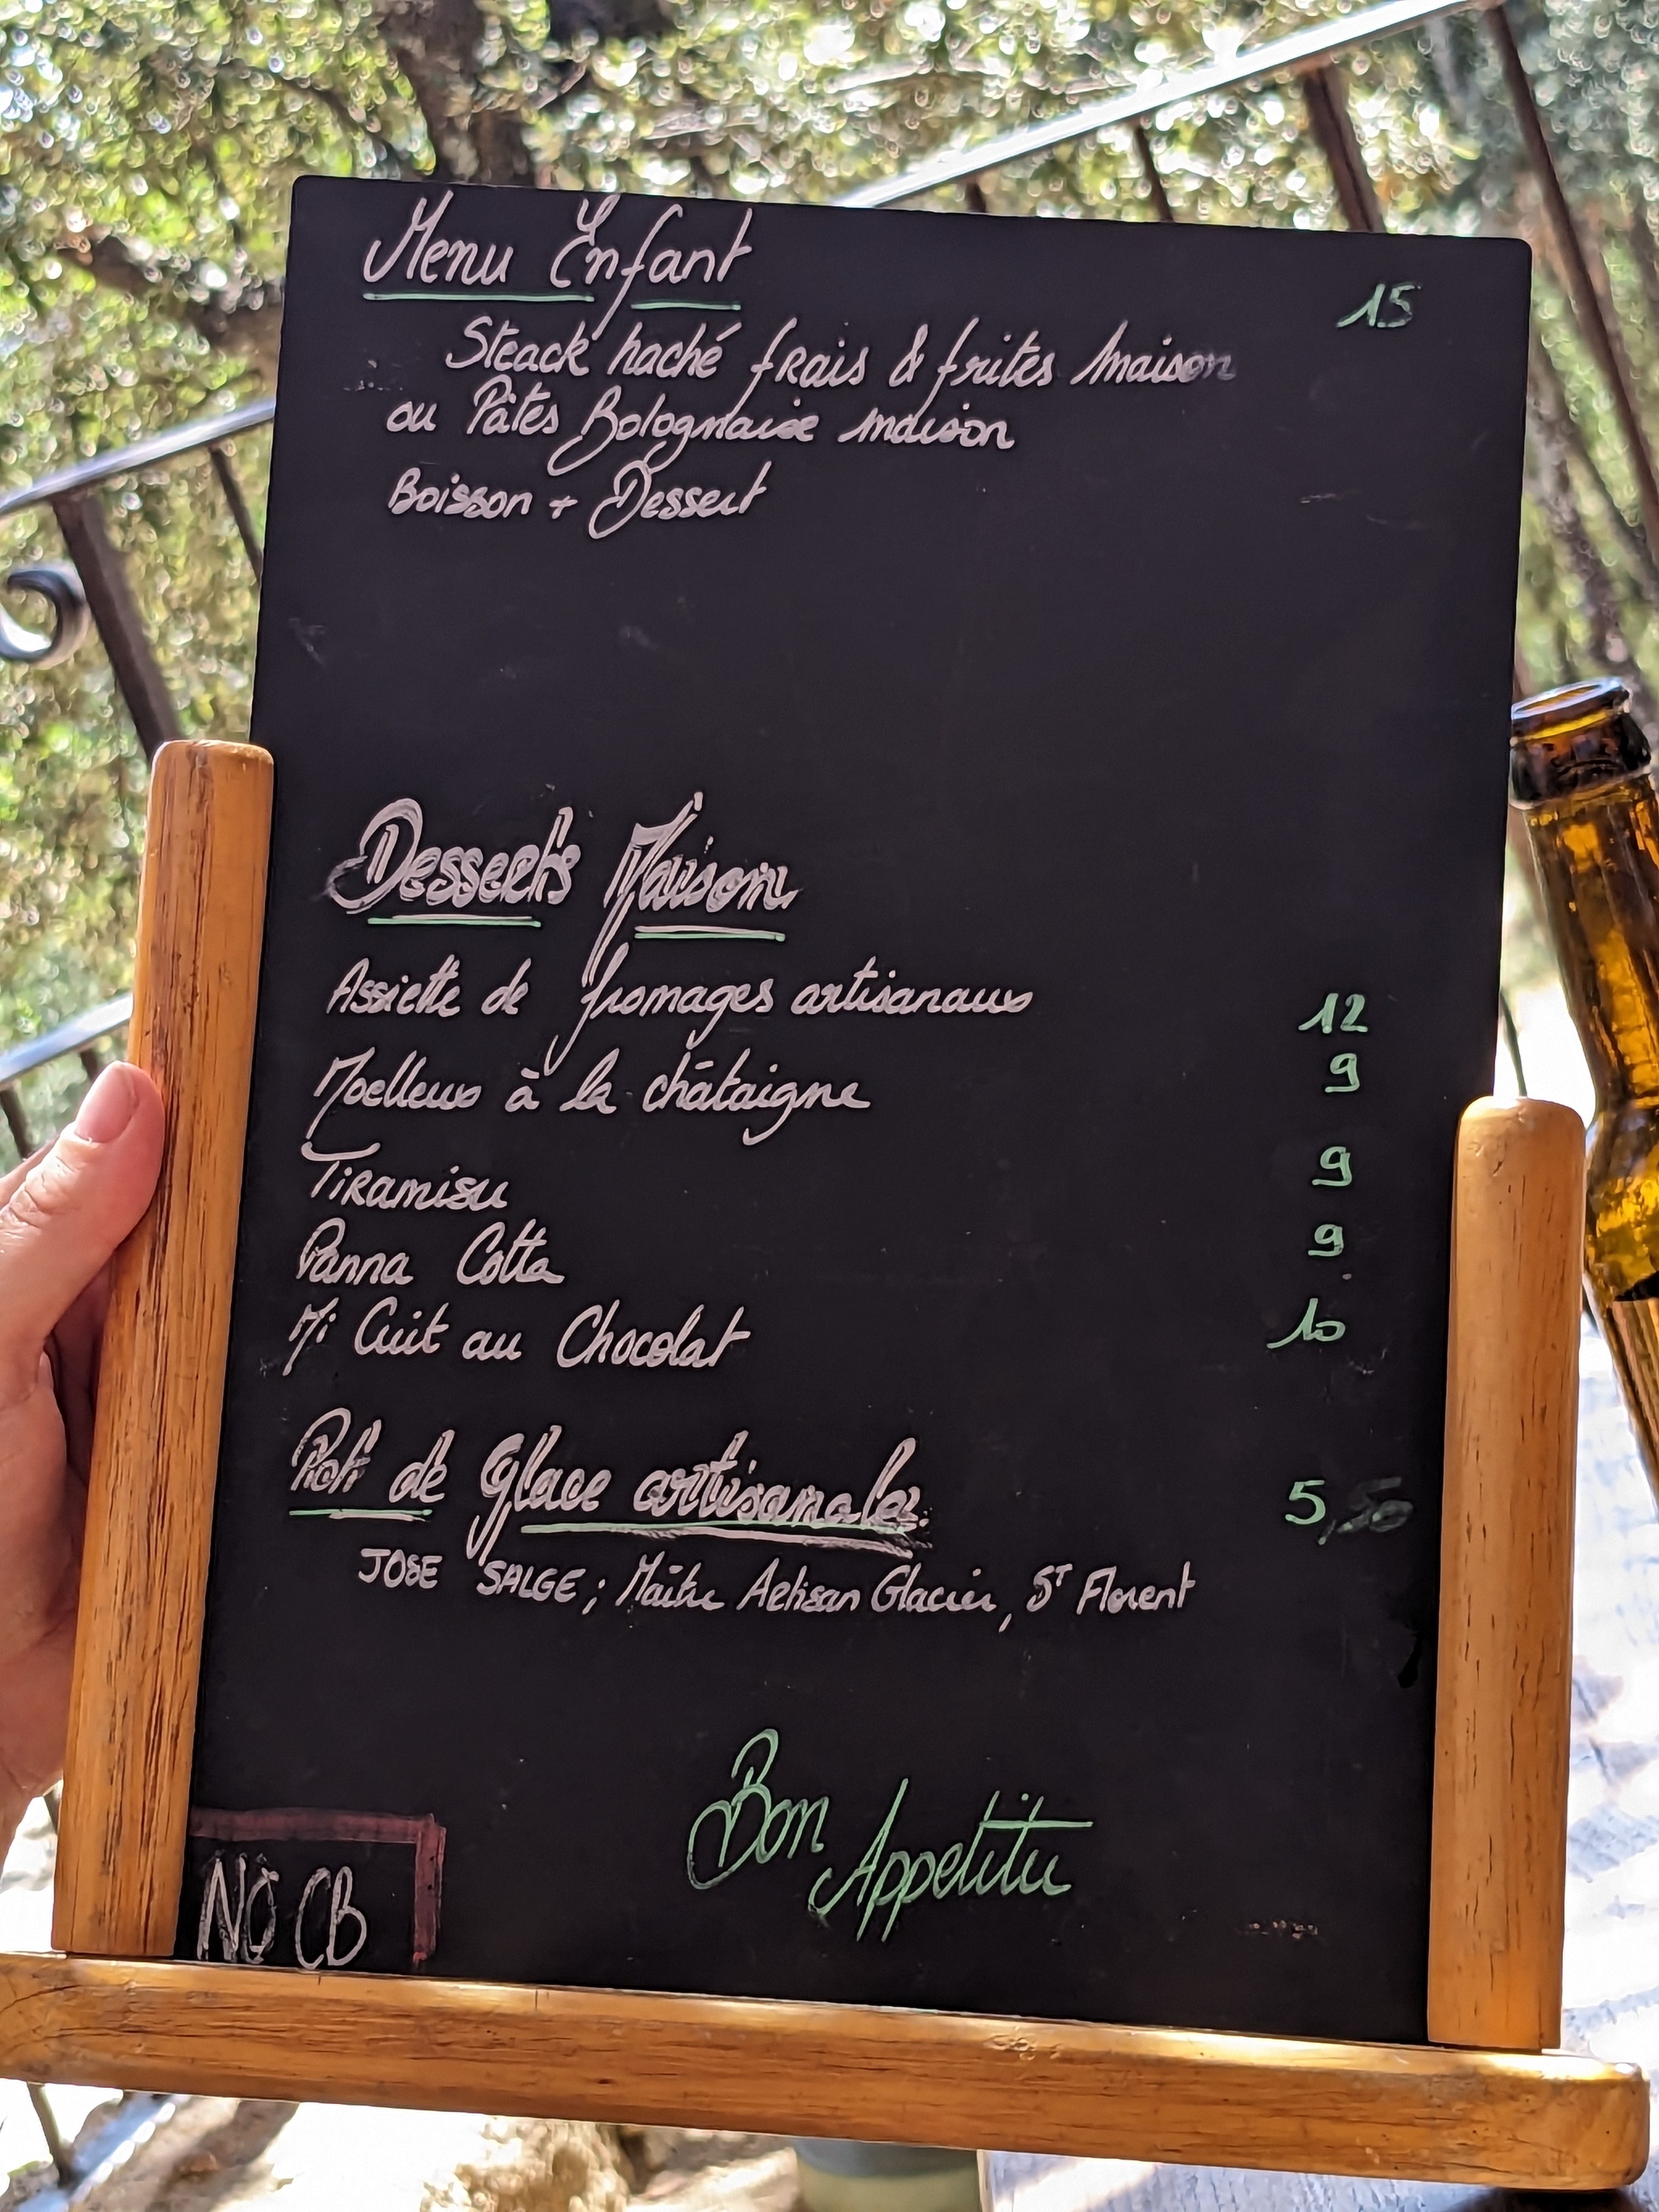 Menu Enfant 15
Steack haché frais & frites maison
ou Pâtes Bolognaise maison
Boisson + Dessert
Desserts Maison
Assiette de fromages artisanaux 12
Moelleux à la châtaigne 9
Tiramisu 9
Panna Cotta 9
Mi Cuit au Chocolat 10
Pot de Glace artisanale: 5,50
JOSE SALGE; Maître Artisan Glacier, ST Florent
Bon
Appetitu
NO CB